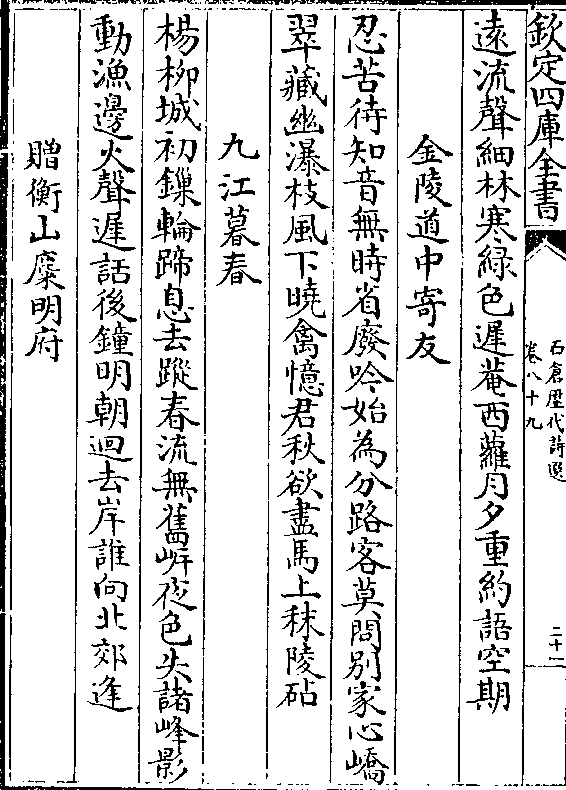 欽定四庫全書
石倉歴代詩選
卷八十九
二十一
遠流聲細林寒綠色遲菴西蘿月夕重約語空期
金陵道中寄友
忍苦待知音無時省廢吟始為分路客莫問别家心嶠
翠藏幽瀑枝風下曉禽憶君秋欲盡馬上秣陵砧
九江暮春
楊柳城初鏁輪蹄息去蹤春流無舊岍夜色失諸峰影
動漁邊火聲遲話後鐘明朝迴去岸誰向北郊逢
贈衡山麋明府